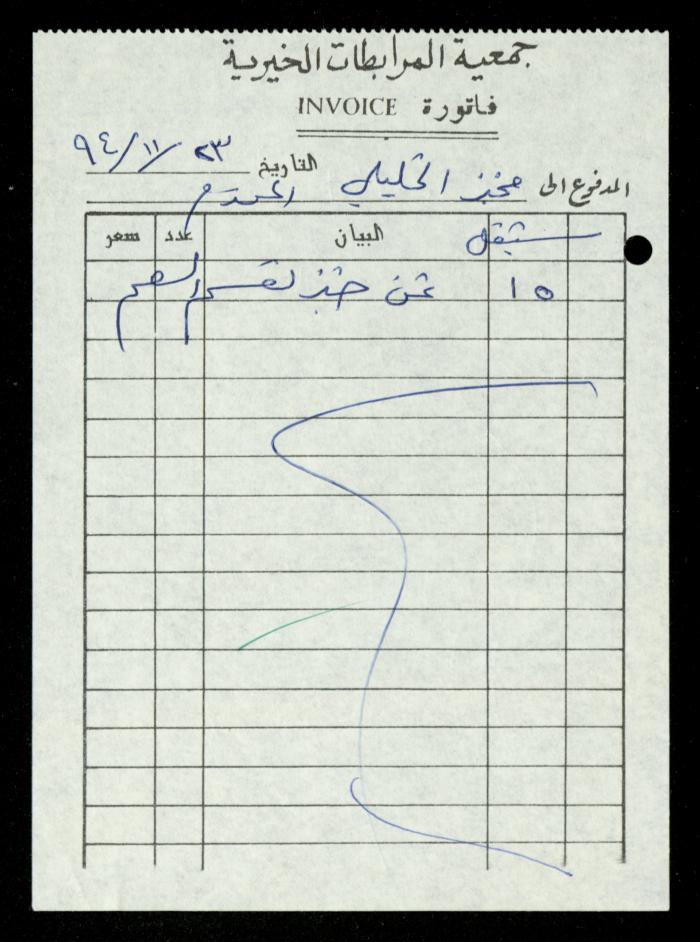 جمعية المرابطات الخيرية
فاتورة INVOICE
التاريخ ٢٣ / ١١ / ٩٤
المدفوع الى مخبز الخليلي المحترم
شيقل البيان عدد سعر
١٥ ثمن خبز لقسم الصم